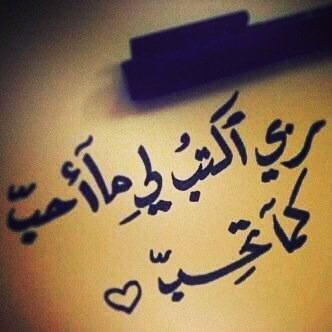 ربي آكتبُ لي مآأحبّ
كمآتحِبّ ♡